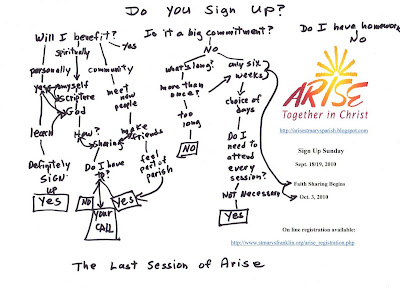 Do You Sign Up?
Will I benefit?
Yes
spiritually
personally
community
yes
myself
Scripture
God
meet
new
people
learn
How?
Sharing
make
friends
Definitely
SIGN
UP
Yes
Do I have
to?
NO
YOUR
CALL
Yes
feel
part of
parish
Is it a big commitment?
No
what's long?
more than
once?
too
long
NO
only six
weeks
choice of
days
Do I
need to
attend
every
session?
NOT Necessary
Yes
Do I have homework
No
ARISE
Together in Christ
http://arisestmarysparish.blogspot.com
Sign Up Sunday
Sept. 18/19, 2010
Faith Sharing Begins
Oct. 3, 2010
On line registration available:
http://www.stmarysfranklin.org/arise_registration.php
The Last Session of Arise